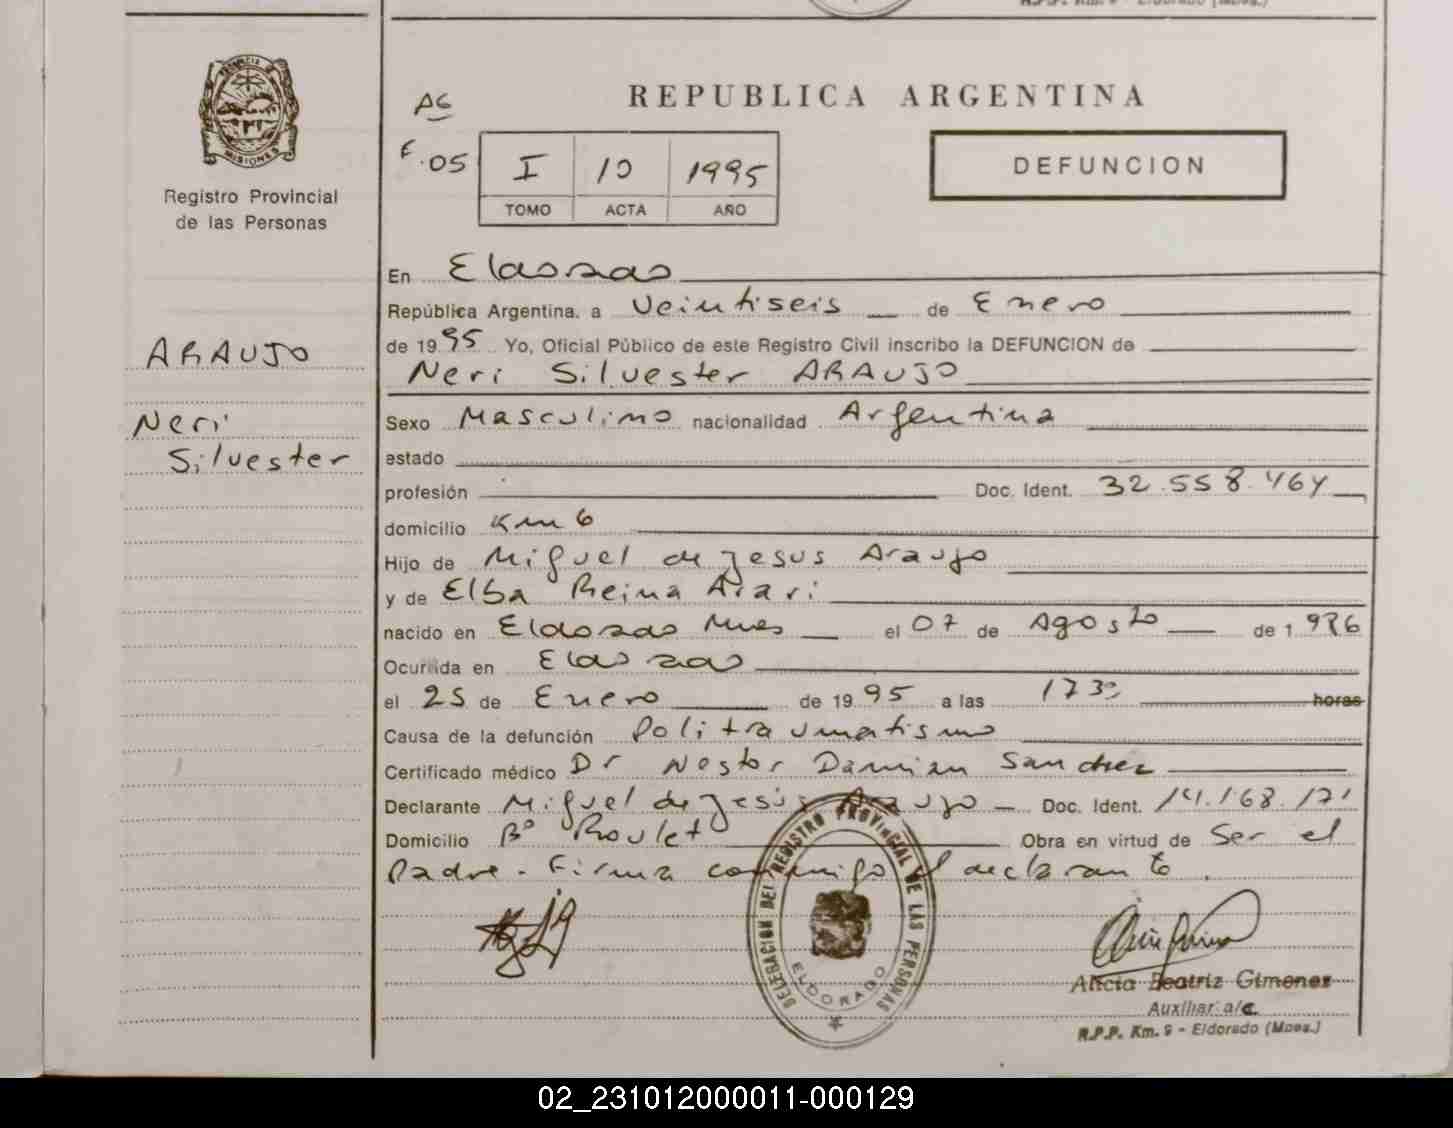 R.P.P. Km. 9 - Eldorado (Mnes.)
PROVINCIA DE
MISIONES
Registro Provincial
de las Personas
ARAUJO
Neri
Silvester
REPUBLICA ARGENTINA
AG
F.05
I 10 1995
TOMO ACTA AÑO
DEFUNCION
En Eldorado
República Argentina, a Veintiseis de Enero
de 1995 Yo, Oficial Público de este Registro Civil inscribo la DEFUNCION de
Neri Silvester ARAUJO
Sexo Masculino nacionalidad Argentina
estado
profesión Doc. Ident. 32.558.464
domicilio Km 6
Hijo de Miguel de Jesus Araujo
y de Elba Reina Arari
nacido en Eldorado Mnes el 07 de Agosto de 1 986
Ocurrida en Eldorado
el 25 de Enero de 1995 a las 1730 horas
Causa de la defunción Politraumatismo
Certificado médico Dr Nestor Damian Sanchez
Declarante Miguel de Jesús Araujo Doc. Ident. 14.168.171
Domicilio Bº Roulet Obra en virtud de Ser el
Padre. Firma conmigo el declarante.
DELEGACION DEL REGISTRO PROVINCIAL DE LAS PERSONAS
ELDORADO
Alicia Beatriz Gimenez
Auxiliar a/c.
R.P.P. Km. 9 - Eldorado (Mnes.)
02_231012000011-000129